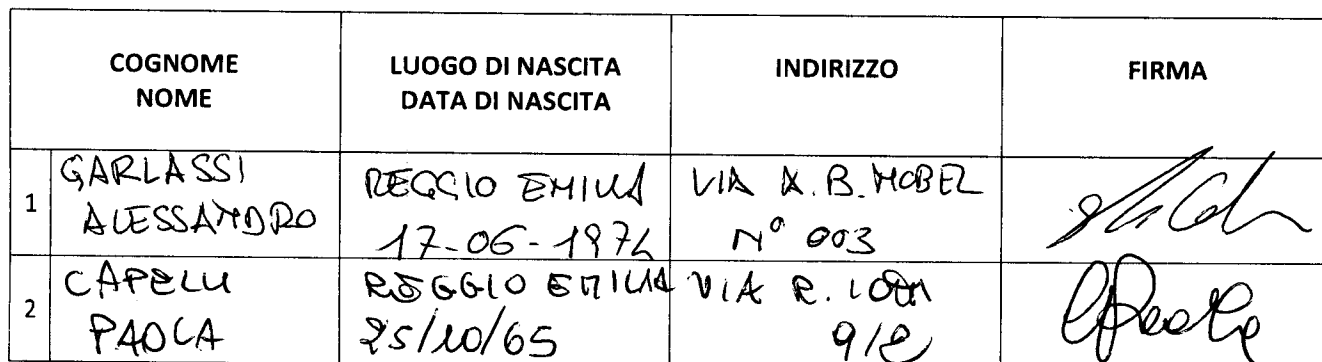 COGNOME NOME LUOGO DI NASCITA DATA DI NASCITA INDIRIZZO FIRMA
1 GARLASSI ALESSANDRO REGGIO EMILIA 17-06-1974 VIA A.B. NOBEL N° 003
2 CAPELLI PAOLA REGGIO EMILIA 25/10/65 VIA R. 9/2